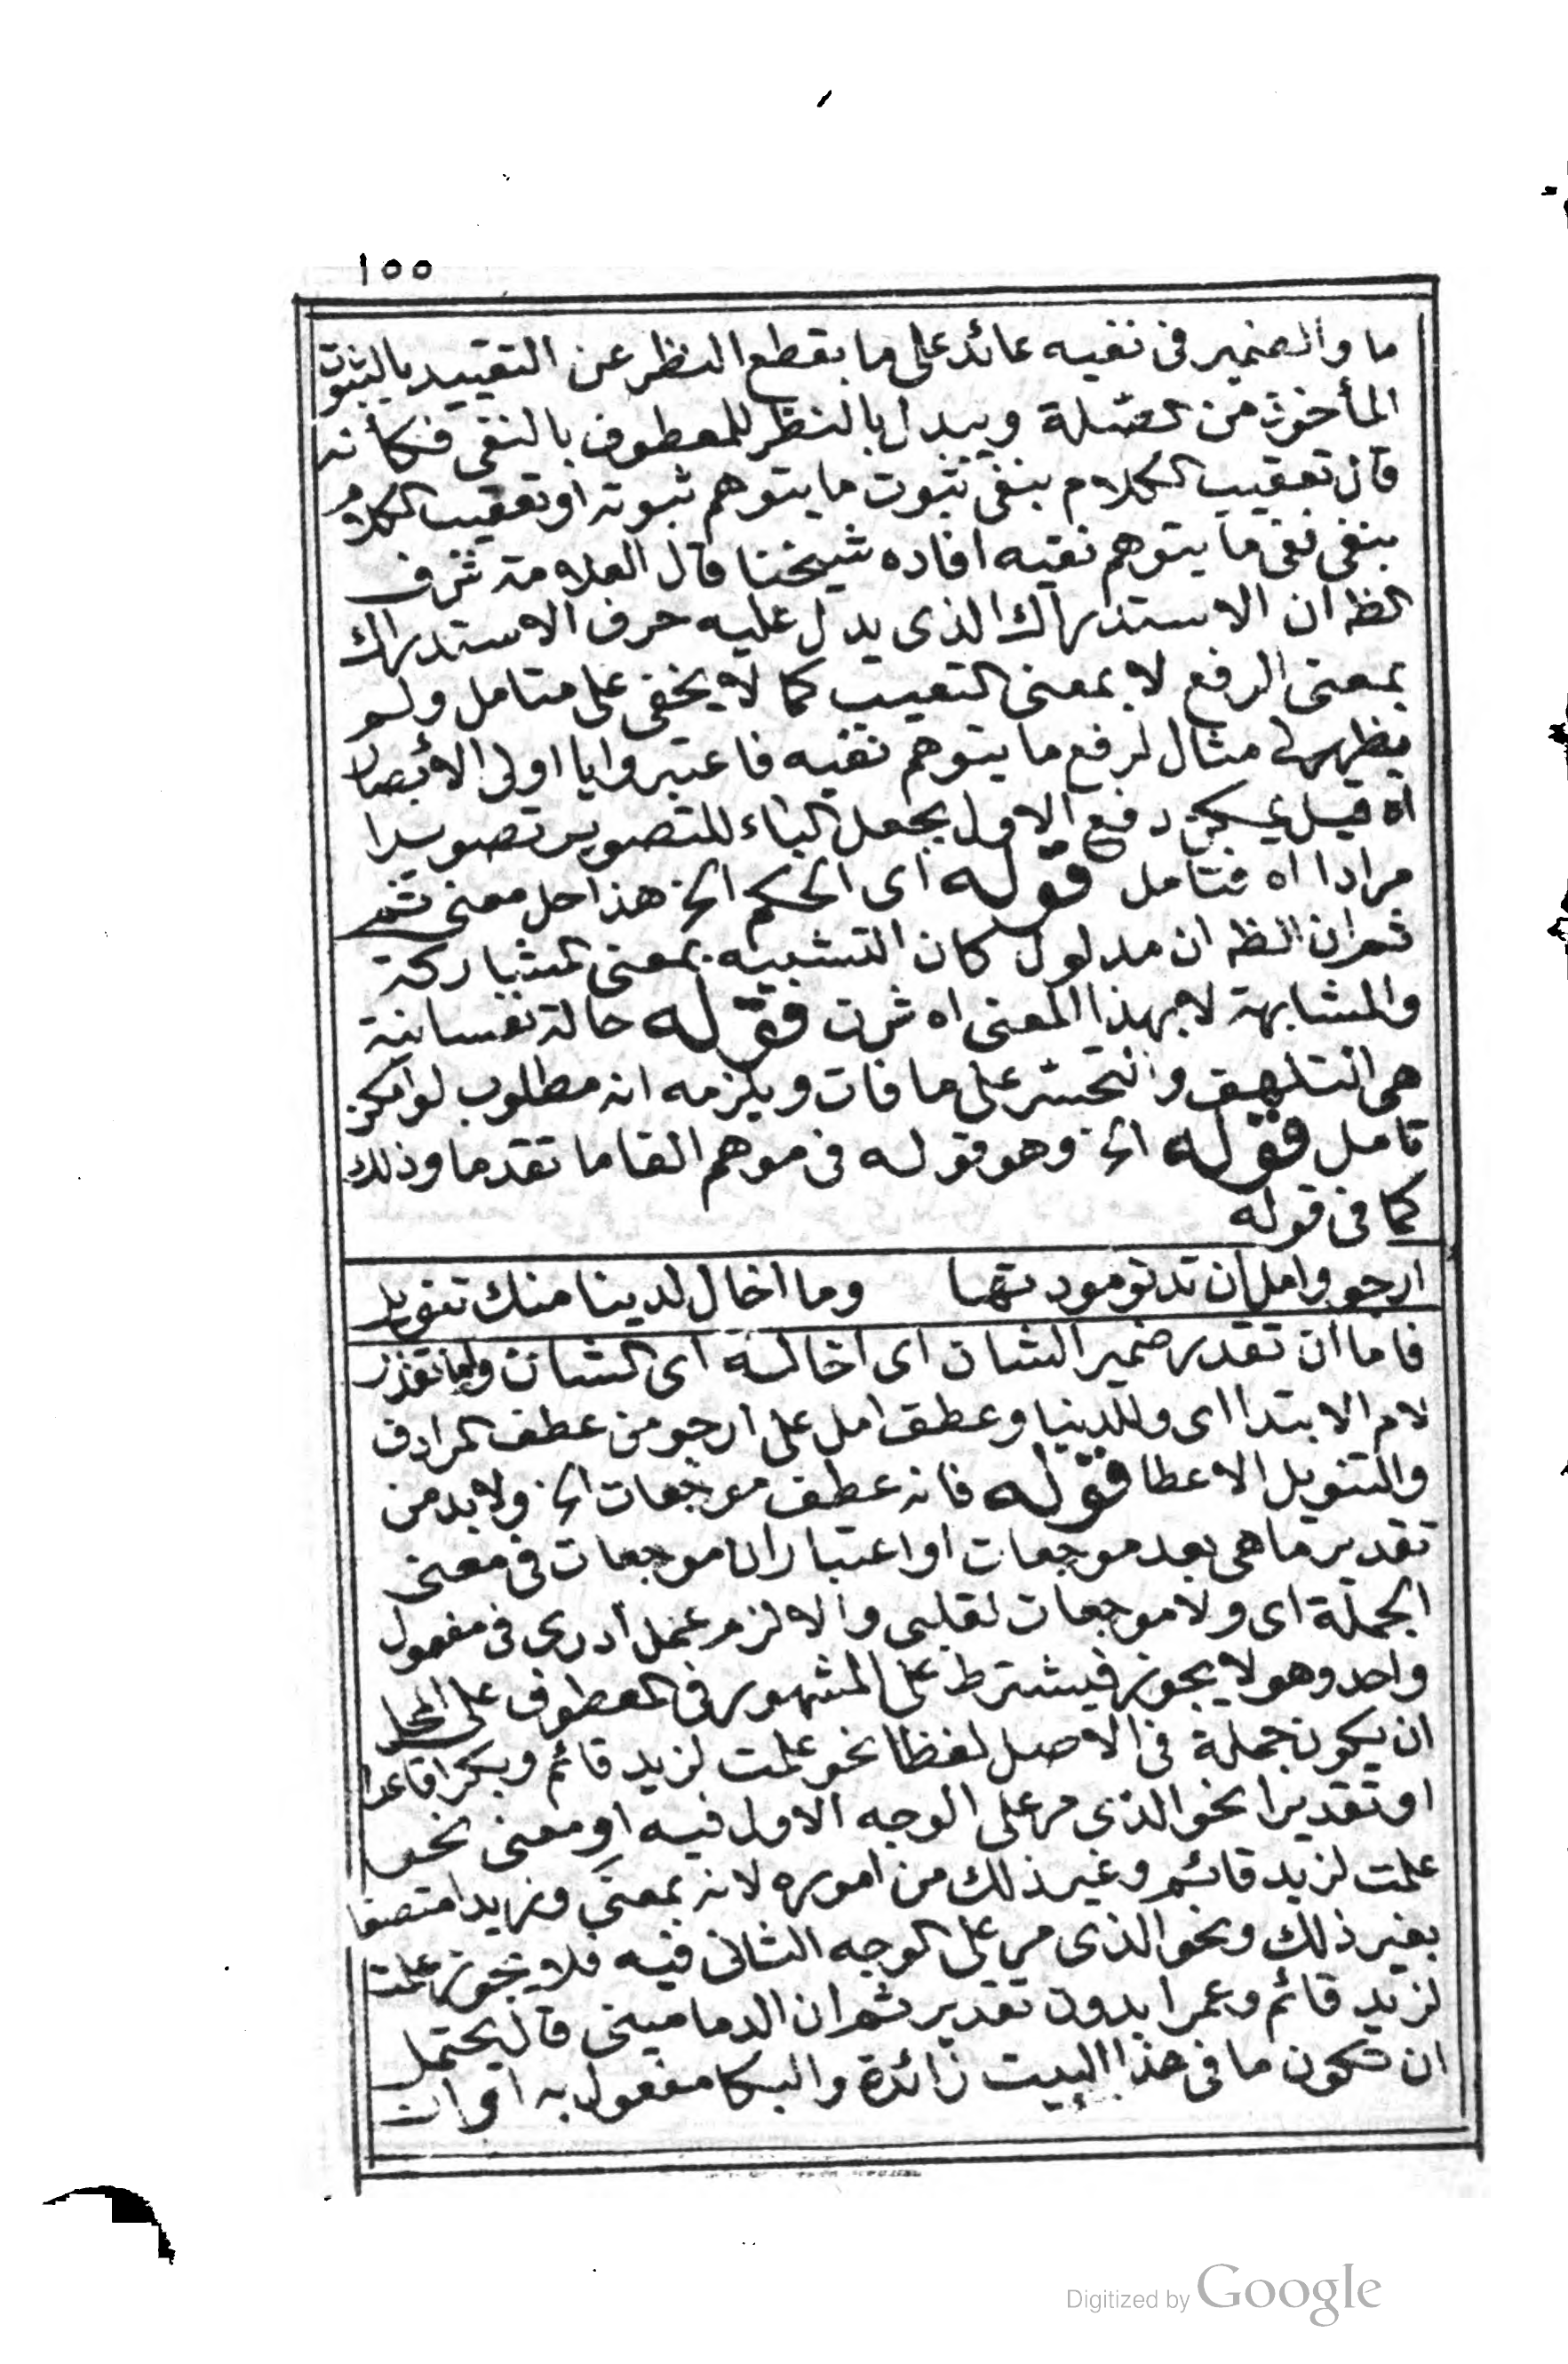 ١٥٥
ما والضمير فى نفيه عائد على ما بقطع النظر عن التقييد بالثبوت
المأخوذ من الصلة ويبدل بالنظر للمعطوف بالنفى فكأنه
قال تعقيب الكلام بنفى ثبوت ما يتوهم ثبوته او تعقيب الكلام
بنفى نفى ما يتوهم نفيه افاده شيخنا قال العلامة شرف
الظ ان الاستدراك الذى يدل عليه حرف الاستدراك
بمعنى الرفع لا بمعنى التعقيب كما لا يخفى على متامل ولم
يظهر لى مثال لرفع ما يتوهم نفيه فاعتبروا يا اولى الأبصار
اه قيل يمكن دفع الاول بجعل الباء للتصوير تصويرا
مرادا اه فتامل قوله اى الحكم الخ هذا حل معنى ثم
ثم ان الظ ان مدلول كان التشبيه بمعنى المشاركة
والمشابهة لا بهذا المعنى اه شرف قوله حالة نفسانية
هى التلهف والتحسر على ما فات ويلزمه انه مطلوب لو امكن
تامل قوله الخ وهو قوله فى موهم الغا ما تقدما وذلك
كما فى قوله
ارجو وامل ان تدنو مودتها وما اخال لدينا منك تنويل
فاما ان تقدر ضمير الشان اى اخاله اى الشان واما تقدر
لام الابتدا اى وللدينا وعطف امل على ارجو من عطف المرادف
والتنويل الاعطا قوله فانه عطف موجعات الخ ولا بد من
تقدير ما هى بعد موجعات او اعتبار ان موجعات فى معنى
الجملة اى ولا موجعات لقلبى والا لزم عمل أدرى فى مفعول
واحد وهو لا يجوز فيشترط على المشهور فى المعطوف على المحل
ان يكون جملة فى الاصل لفظا نحو علمت لزيد قائم وبكرا قاعدا
او تقديرا نحو الذى مر على الوجه الاول فيه او معنى نحو
علمت لزيد قائم وغير ذلك من اموره لانه بمعنى وزيدا متصفا
بغير ذلك ونحو الذى مر على الوجه الثانى فيه فلا يجوز علمت
لزيد قائم وعمرا بدون تقدير ثم ان الدمامينى قال يحتمل
ان تكون ما فى هذا البيت زائدة والبكا مفعول به او ان
Digitized by Google